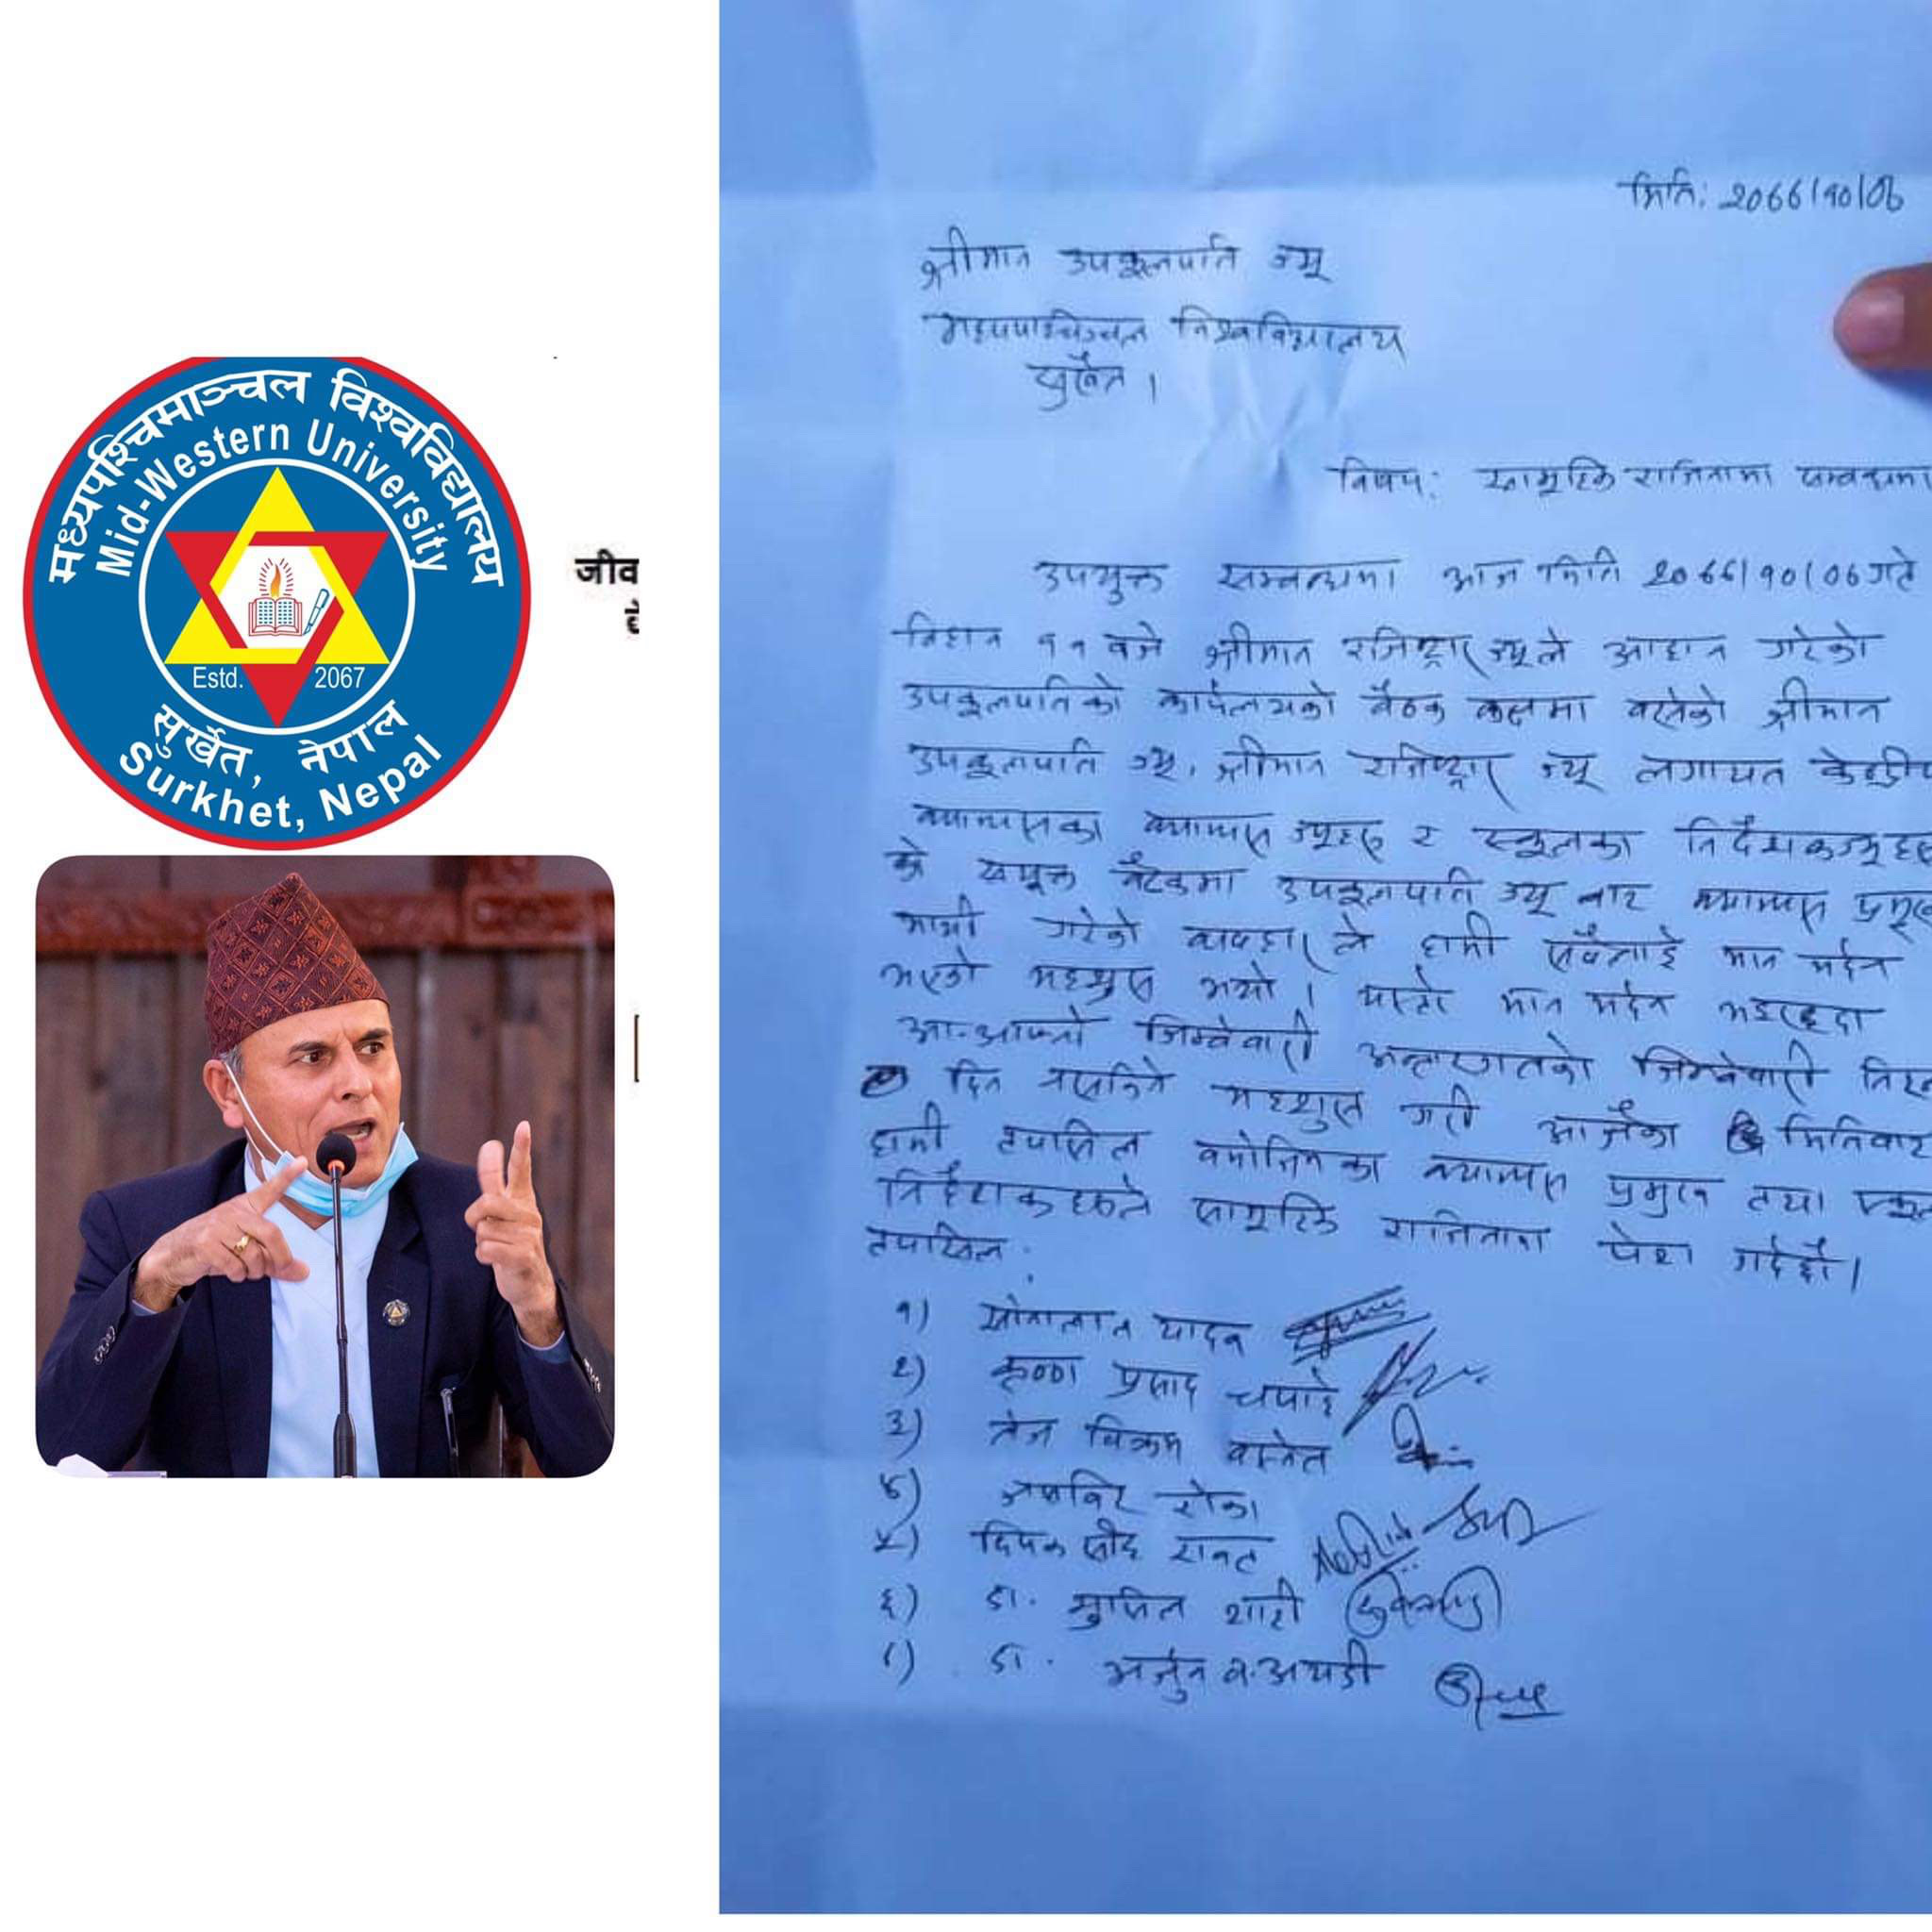 मध्यपश्चिमाञ्चल विश्वविद्यालय
Mid-Western University
Estd. 2067
सुर्खेत, नेपाल
Surkhet, Nepal
जीव
मिति: २०७७।१०।०७
श्रीमान उपकुलपति ज्यू
मध्यपश्चिमाञ्चल विश्वविद्यालय
सुर्खेत ।
विषय: सामूहिक राजिनामा सम्बन्धमा
उपर्युक्त सम्बन्धमा आज मिति २०७७।१०।०७ गते
बिहान ११ बजे श्रीमान रजिष्ट्रार ज्यूले आह्वान गरेको
उपकुलपतिको कार्यलयको बैठक कक्षमा बसेको श्रीमान
उपकुलपति ज्यू, श्रीमान रजिष्ट्रार ज्यू लगायत केन्द्रीय
क्याम्पसका क्याम्पस ज्यूहरु र स्कूलका निर्देशकज्यूहरु
को संयुक्त बैठकमा उपकुलपति ज्यू बाट क्याम्पस प्रमूख
माथी गरेको व्यवहार ले हामी सबैलाई मान मर्दन
भएको महशुस भयो । यस्तो मान मर्दन भइरहदा
आ-आफ्नो जिम्वेवारी अन्तरगतको जिम्वेवारी
दिन नसकिने महशुस गरी आजैका मितिबाट
हामी तपसिल बमोजिमका क्याम्पस प्रमुख तथा स्कूल
निर्देशकहरुले सामूहिक राजिनामा पेश गर्दछौं ।
तपसिल:
१) यादव
२) कृष्ण प्रसाद चपाई
३) तेज विक्रम बस्नेत
४) रोका
५) दिपक सींह रावत
६) डा. शाही
७) डा. अर्जुन ब. अयडी